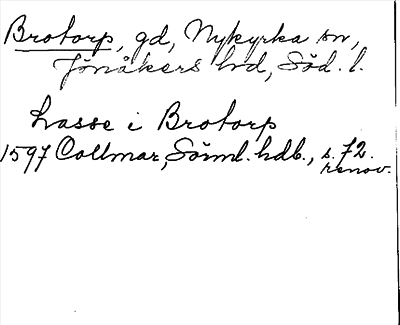 Brotorp, gd, Nykyrka sn,
Jönåkers hd, Söd. l.
Lasse i Brotorp
1597 Collmar, Sörml. hdb., s. 72.
renov.